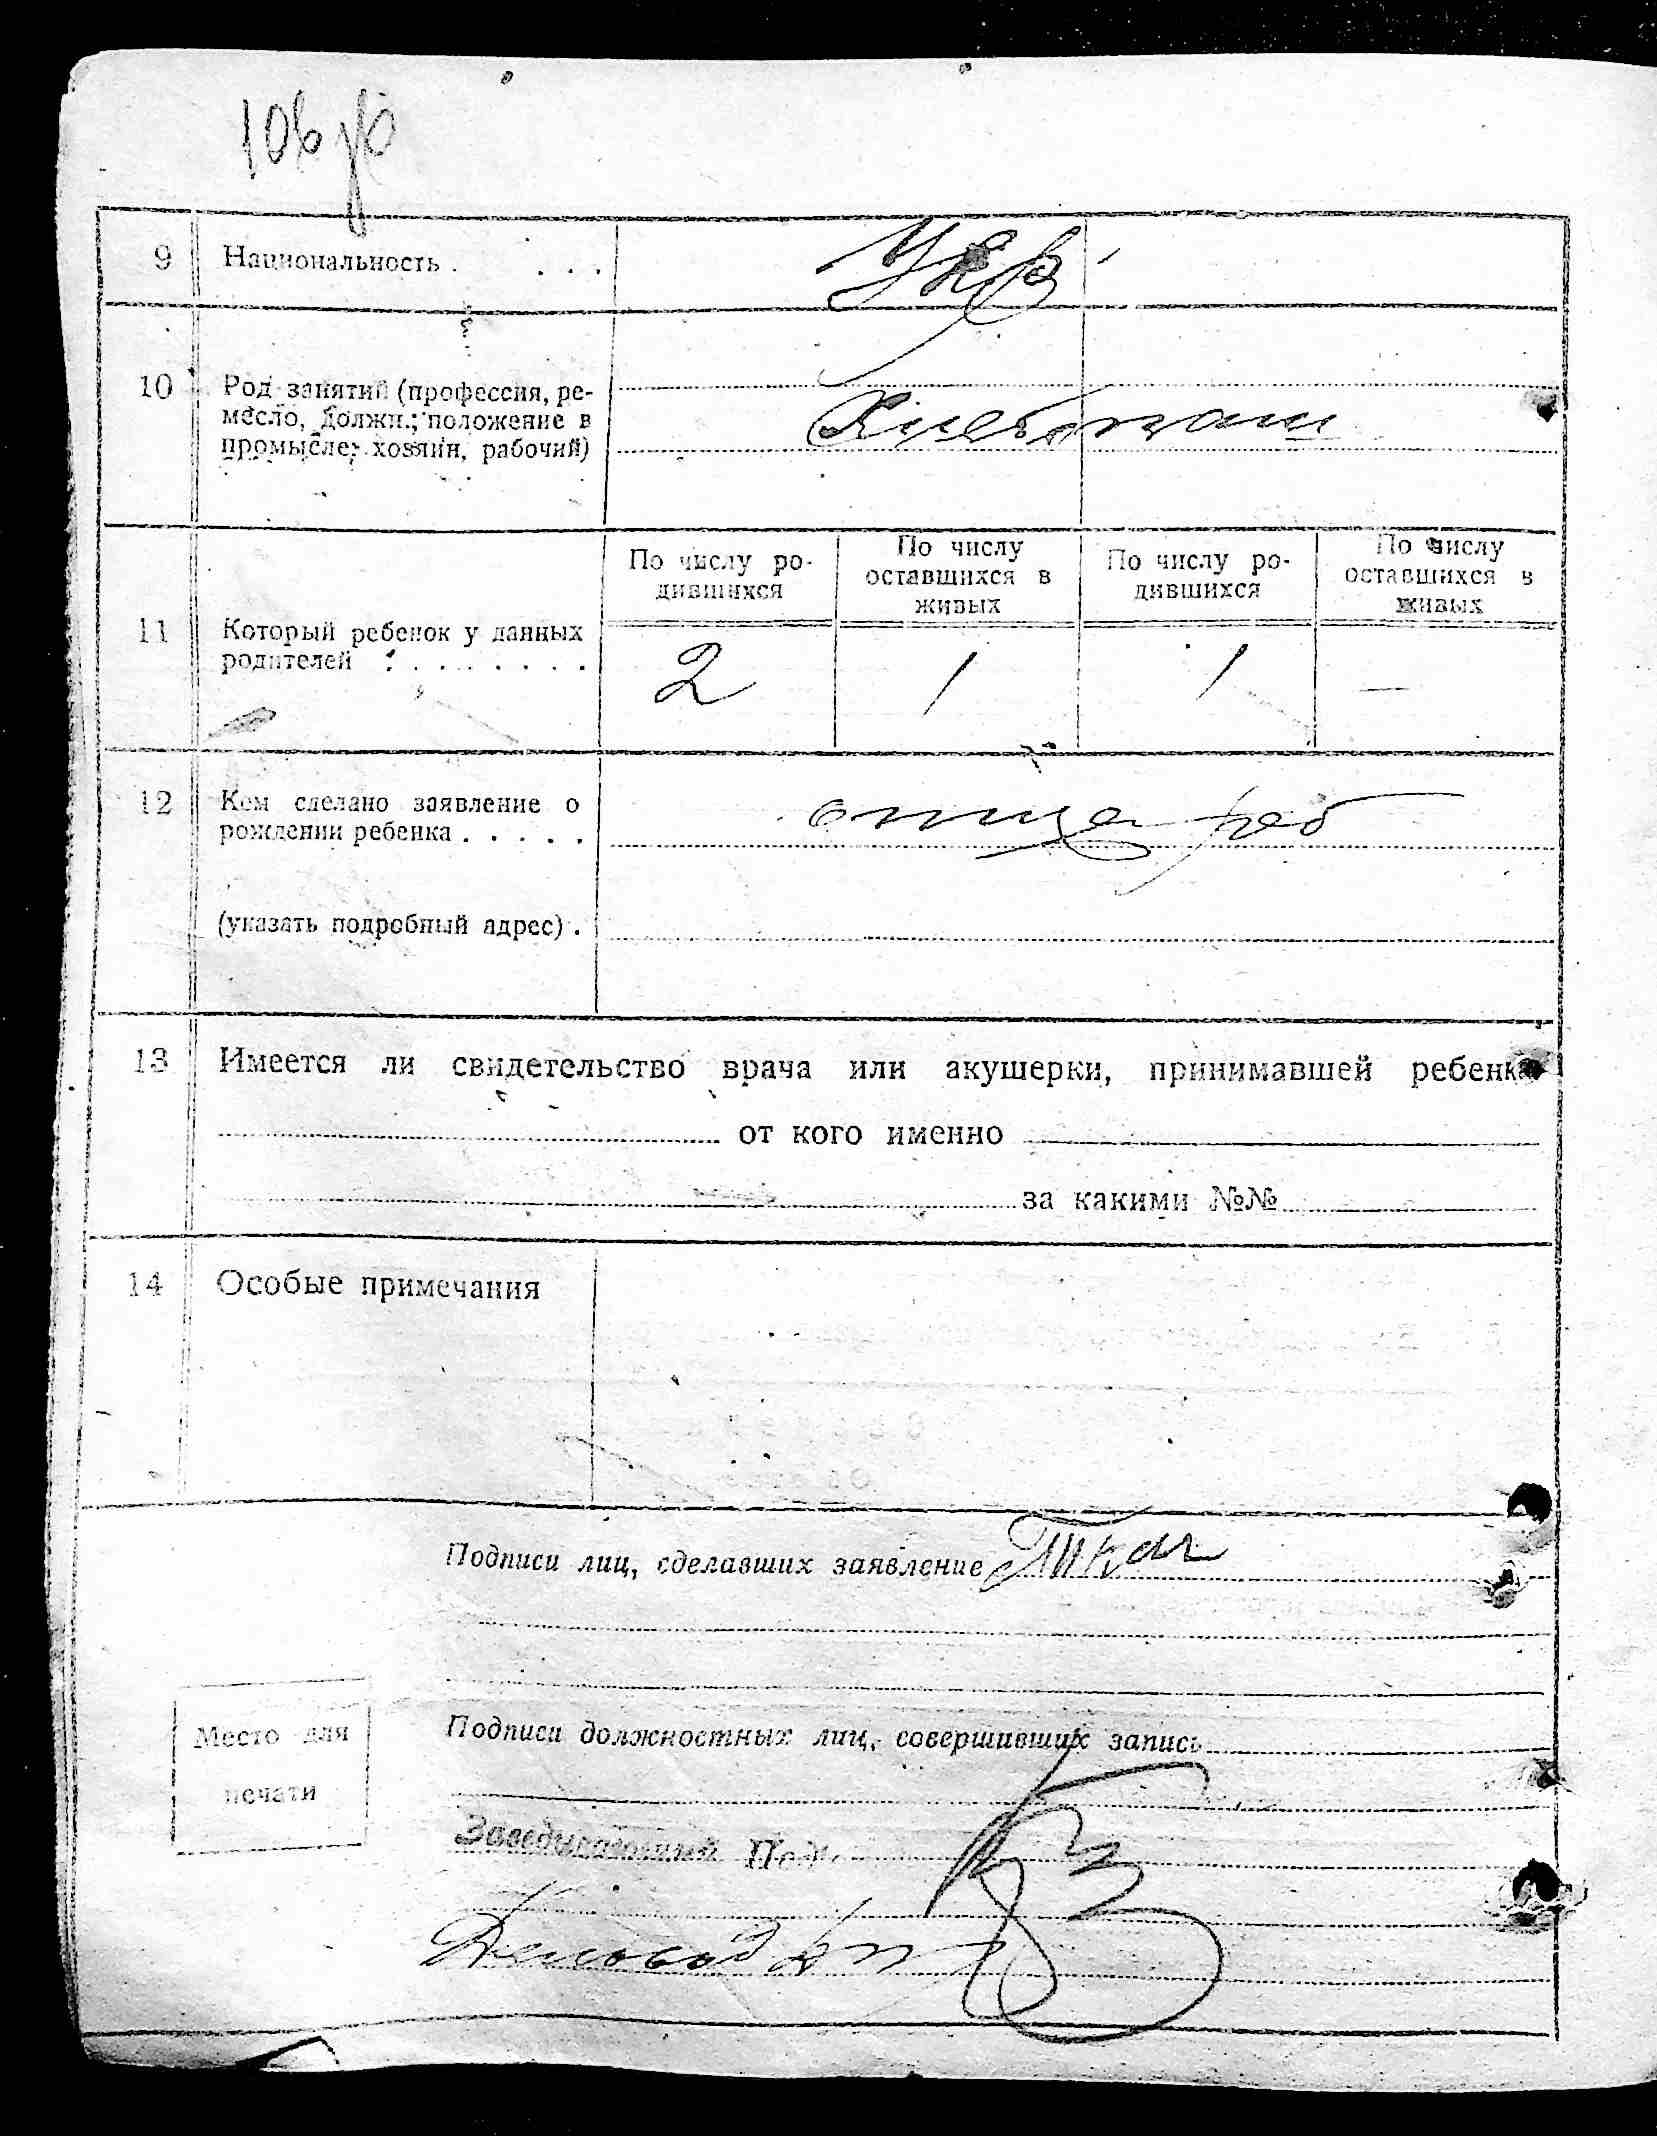 106 об
9 Национальность . . . . Укр
10 Род занятий (профессия, ре-
месло, должн.; положение в
промысле: хозяин, рабочий)
Хлебопаш
11 Который ребенок у данных
родителей . . . . . . . .
По числу ро-
дившихся
По числу
оставшихся в
живых
По числу ро-
дившихся
По числу
оставшихся в
живых
2 1 1 —
12 Кем сделано заявление о
рождении ребенка . . . . .
отца реб
(указать подробный адрес) .
13 Имеется ли свидетельство врача или акушерки, принимавшей ребенка
от кого именно
за какими №№
14 Особые примечания
Подписи лиц, сделавших заявление
Место для
печати
Подписи должностных лиц, совершивших запись
Заведывающий Под
Деловод